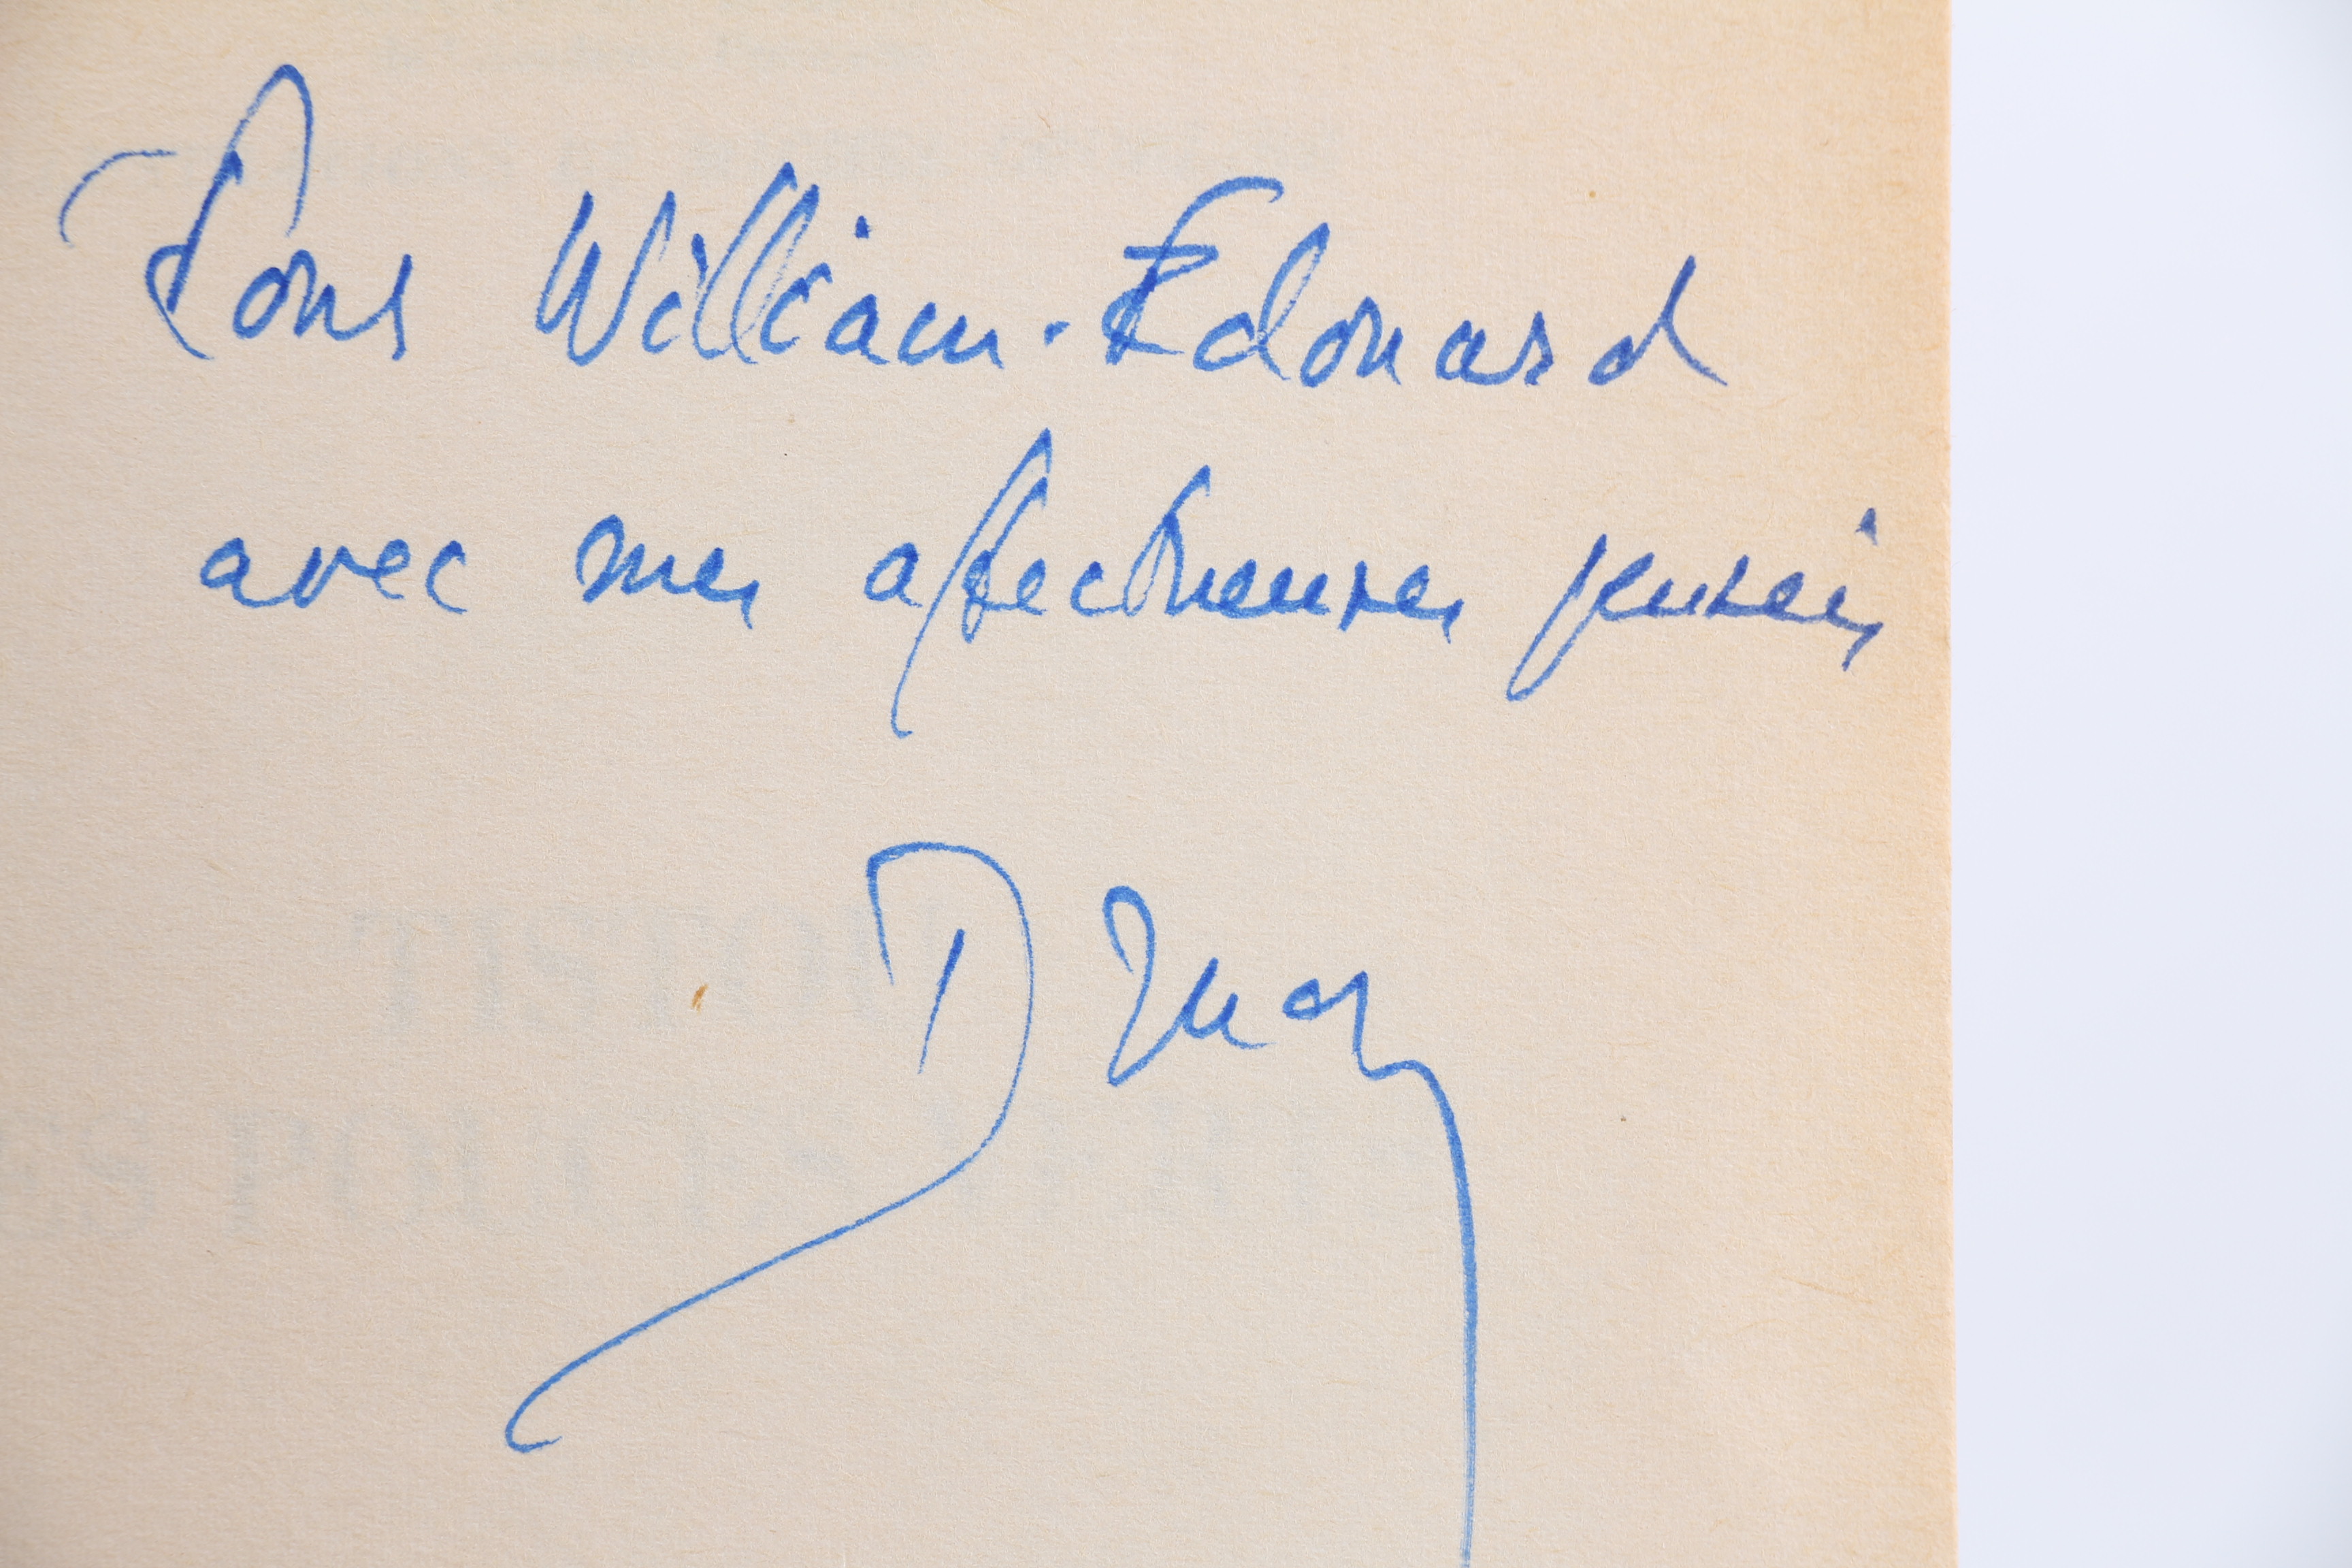 Pour William-Edouard
avec mes affectueuses pensées